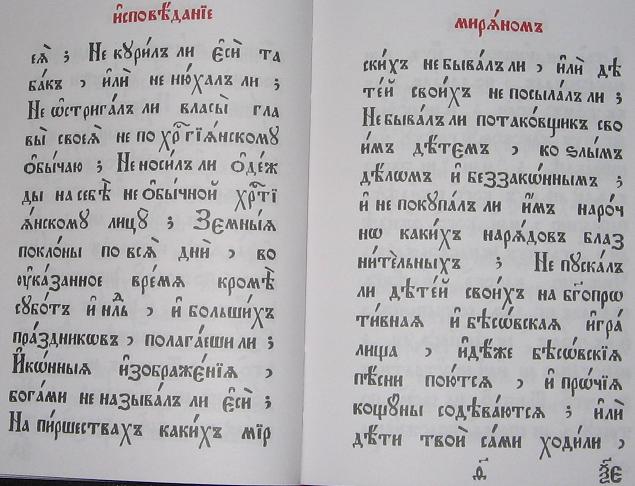 и҆сповѣ́данїе
еѧ̀ ; Не кꙋри́лъ ли є҆сѝ та
ба́къ , и҆лѝ не ню́халъ ли ;
Не ѡ҆стрига́лъ ли власы̀ гла
вы̀ своеѧ̀ не по хрⷭ҇тїѧ́нскомꙋ
ѻ҆бы́чаю ; Не носи́лъ ли ѻ҆де́ж
ды на себѣ̀ не ѻ҆бы́чной хрⷭ҇тї
ѧ́нскомꙋ лицꙋ̀ ; Земны́ѧ
покло́ны по всѧ̀ днѝ , во
ᲂу҆ка́занное вре́мѧ кромѣ̀
сꙋбѡ́тъ и҆ нлⷣь , и҆ больши́хъ
пра́здникѡвъ , полага́еши ли ;
И҆кѡ́нныѧ и҆зображе́нїѧ ,
бога́ми не называ́лъ ли є҆сѝ ;
На пи́ршествахъ каки́хъ мїр
мирѧ́номъ
ски́хъ не быва́лъ ли , и҆лѝ дѣ
те́й свои́хъ не посыла́лъ ли ;
Не быва́лъ ли потако́вщик сво
и́мъ дѣ́темъ , ко ѕлы́мъ
дѣлѡ́мъ и҆ беззако́ннымъ ;
и҆ не покꙋпа́лъ ли и҆̀мъ наро́ч
нѡ каки́хъ нарѧ́довъ блаз
ни́тельныхъ ; Не пꙋска́лъ
ли дѣте́й свои́хъ на бг҃опрѡ
ти́внаѧ и҆ бѣсѡ́вскаѧ и҆гра́
лища , и҆дѣ́же бѣсѡ́вскїѧ
пѣ́сни пою́тсѧ , и҆ прѡ́чїѧ
кощꙋ́ны содѣва́ютсѧ ; и҆лѝ
дѣ́ти твоѝ са́ми ходи́ли ,